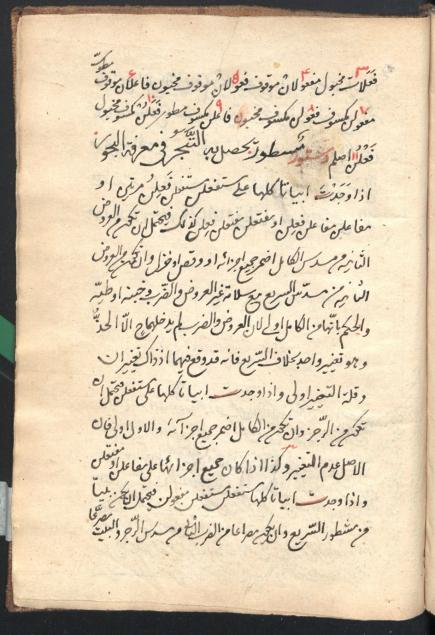 مطوى
فَعَلاتُ مخبول مفعولان موقوف فعولان موقوف مخبون فاعلان موقوف
مفعولن مكسوف فعولن مكسوف مخبون فاعلن مكسوف مطوى فَعِلُن مكسوف مخبول
فَعْلُن اصلم دستور مسطور يحصل به التبحر فى معرفة البحور
اذا وجدت ابياتا كلها على مستفعلن مستفعلن فعلن مرتين او
مفاعلن مفاعلن فعلن او مفتعلن مفتعلن فعلن كذلك فيحتمل ان تكون من العروض
الثانية من مسدس الكامل اضمر جميع اجزائه او وقص او خزل وان تكون من العروض
الثانية من مسدس السريع مع سلامة غير العروض والضرب وخبنه او طيه
والحكم بانها من الكامل اولى لان العروض والضرب لم يدخلهما ح الا الحذذ
وهو تغيير واحد بخلاف السريع فانه قد وقع فيهما اذ ذاك تغييران
وقلة التغيير اولى واذا وجدت ابياتا كلها على مستفعلن فيحتمل ان
تكون من الرجز وان تكون من الكامل اضمر جميع اجزائه والاول اولى فان
الاصل عدم التغيير وكذا اذا كان جميع اجزائها على مفاعلن او مفتعلن
واذا وجدت ابياتا كلها مستفعلن مستفعلن مفعولن فيحتمل ان تكون
من مشطور السريع وان يكون مصراعا من الضرب من مسدس الرجز والبيت